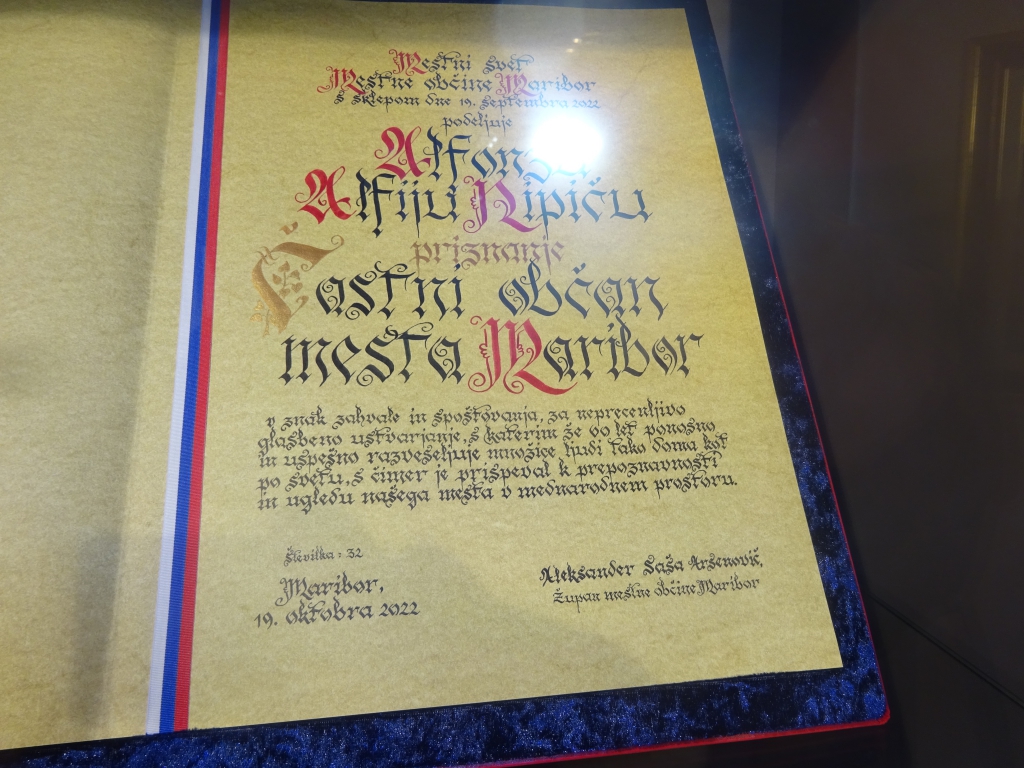 Mestni svet
Mestne občine Maribor
s sklepom dne 19. septembra 2022
podeljuje
Alfonzu
Alfiju Nipiču
priznanje
Častni občan
mesta Maribor
v znak zahvale in spoštovanja, za neprecenljivo
glasbeno ustvarjanje, s katerim že 60 let ponosno
in uspešno razveseljuje množice ljudi tako doma kot
po svetu, s čimer je prispeval k prepoznavnosti
in ugledu našega mesta v mednarodnem prostoru.
Številka: 32
Maribor,
19. oktobra 2022
Aleksander Saša Arsenovič,
Župan mestne občine Maribor